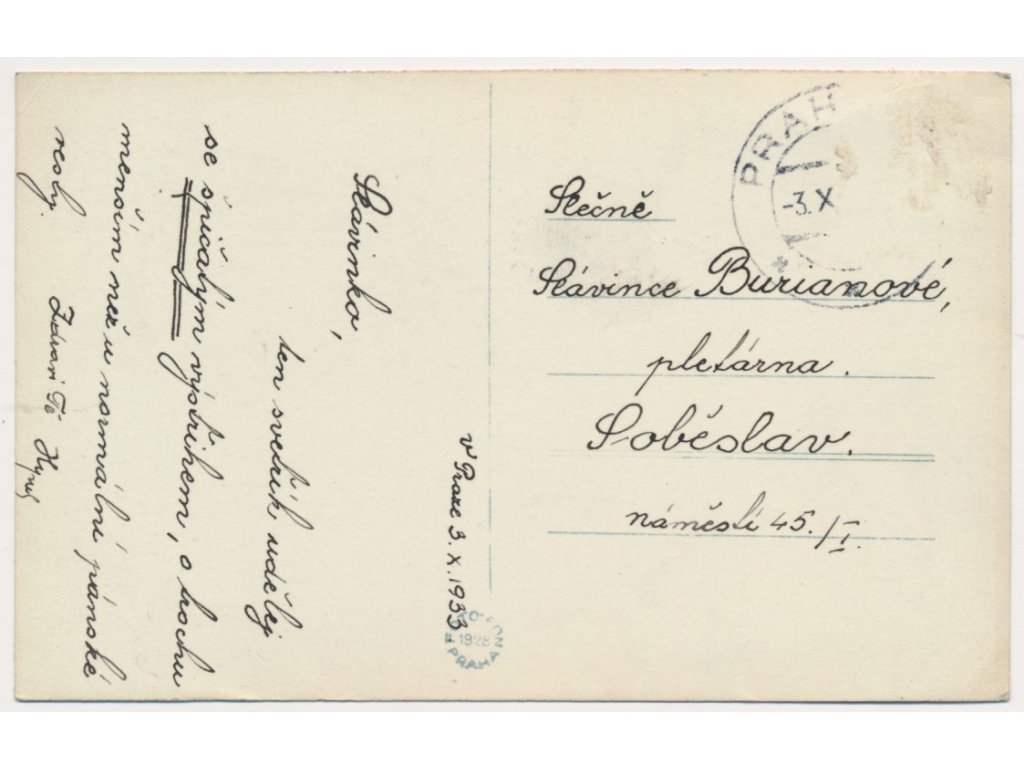 Slávinko,
ten svetřík udělej
se špičatým výstřihem, o trochu
menším než u normální pánské
vesty. Zdraví Tě Hynek
v Praze 3.X.1933
Slečně
Slávince Burianové,
pletárna.
Soběslav.
náměstí 45./I.
PRAH
-3.X
FOTO-FON
1928
PRAHA